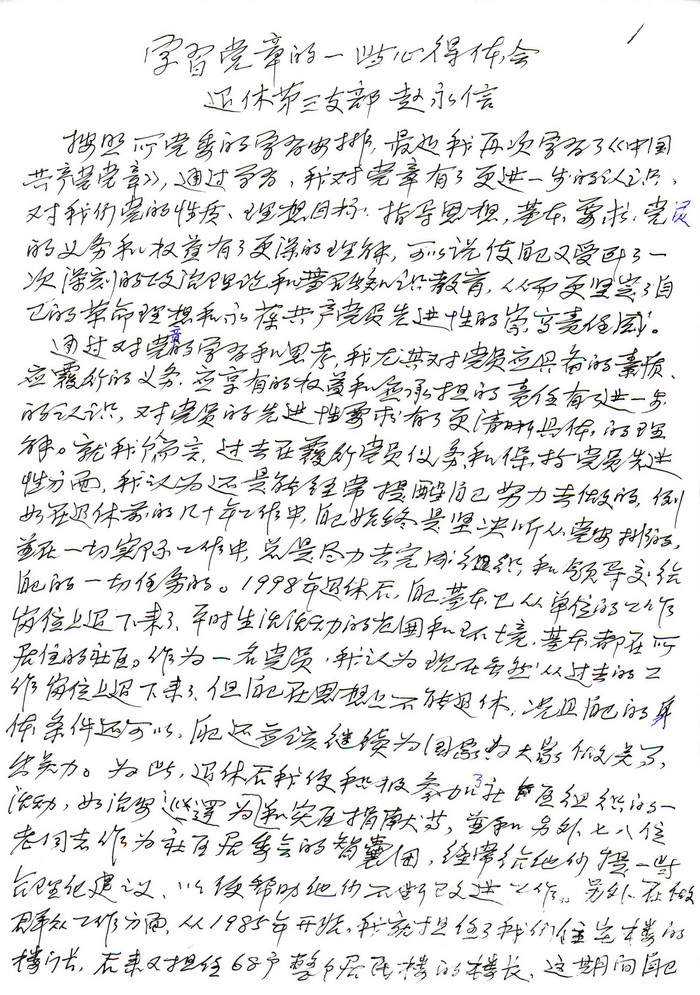 1
学习党章的一些心得体会
退休第三支部 赵永信
按照所党委的学习安排，最近我再次学习了《中国
共产党党章》，通过学习，我对党章有了更进一步的认识，
对我们党的性质、理想目标、指导思想，基本要求、党员
的义务和权益有了更深的理解，可以说使自己又受到了一
次深刻的政治理论和党的知识教育，从而更坚定了自
己的革命理想和永葆共产党员先进性的崇高责任感。
通过对党章的学习和思考，我尤其对党员应具备的素质、
应履行的义务、应享有的权益和应承担的责任有了进一步
的认识，对党员的先进性要求有了更清晰具体的理
解。就我个人而言，过去在履行党员义务和保持党员先进
性方面，我认为还是能经常提醒自己努力去做的，例
如在退休前的几十年工作中，自己始终是坚决听从党安排的，
并在一切实际工作中，总是尽力去完成组织和领导交给
自己的一切任务的。1998年退休后，自己基本上从单位的工作
岗位上退下来了、平时生活活动的范围和环境，基本都在所
居住的社区。作为一名党员，我认为现在虽然从过去的工
作岗位上退下来了、但自己在思想上不能退休，况且自己的身
体条件还可以，自己还应该继续为国家为大家做点事，
出点力。为此，退休后我便积极参加了社区组织的一
活动，如治安巡逻和实在捐献等，并和另外七八位
老同志作为社区居委会的智囊团，经常给他们提一些
合理化建议、以便帮助他们不断改进工作。另外在做
群众工作方面，从1985年开始，我就担任了我们住宅楼的
楼门长，后来又担任68户整个居民楼的楼长，这期间自己